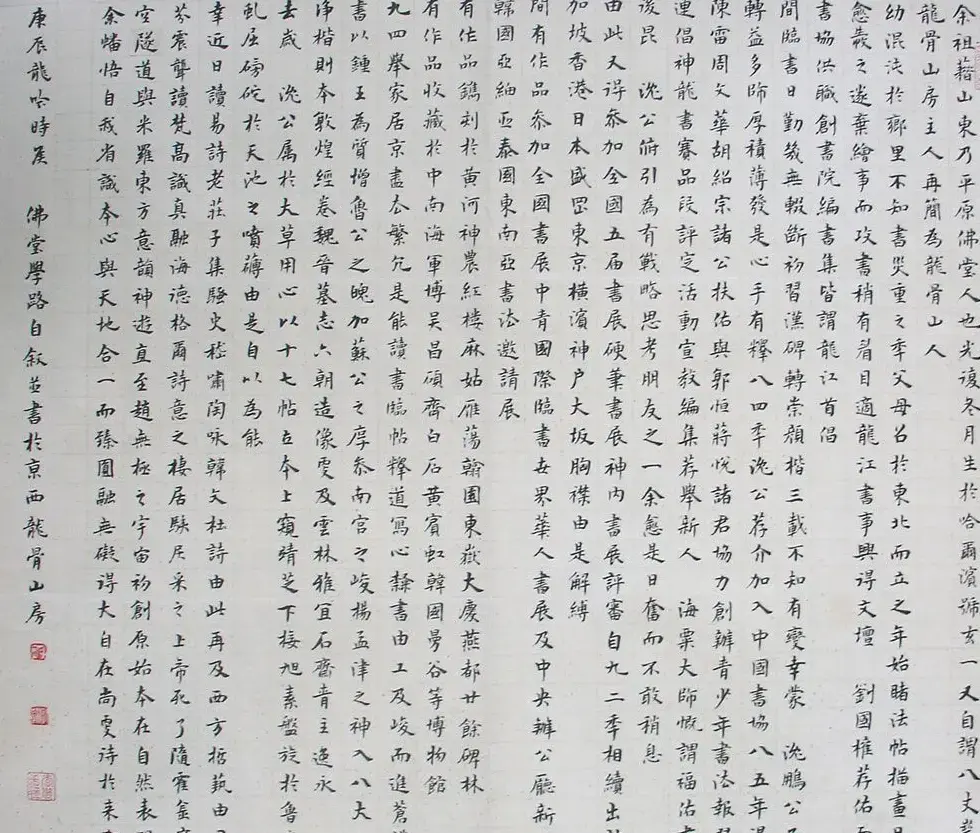 余祖藉山東乃平原佛堂人也光復冬月生於哈爾濱號亥一又自謂八丈
龍骨山房主人再簡為龍骨山人
幼混沌於鄉里不知書災重之季父母召於東北而立之年始睹法帖描畫
愈義之遂棄繪事而攻書稍有眉目適龍江書事興得文壇 劉國權荐佑
書協供職創書院編書集皆謂龍江首倡
間臨書日勤幾無輟斷初習漢碑轉崇顏楷三載不知有變幸蒙 沈鵬公
轉益多師厚積薄發是心手有釋八四季沈公荐介加入中國書協八五年
陳雷周文華胡紹宗諸公扶佑與郭恒蔣悅諸君協力創辦青少年書法報
連倡神龍書賽品段評定活動宣教編集荐舉新人 海粟大師慨謂福佑
後昆 沈公俯引為有戰略思考朋友之一余愈是日奮而不敢稍息
由此又得參加全國五屆書展硬筆書展神内書展評審自九二季相續出
加坡香港日本盛岡東京橫濱神户大坂胸襟由是解縛
間有作品參加全國書展中青國際臨書世界華人書展及中央辦公廳新
韓國亞細亞泰國東南亞書法邀請展
有作品鐫刻於黄河神農紅樓麻姑雁蕩翰園東嶽大慶燕都廿餘碑林
有作品收藏於中南海軍博吴昌碩齊白石黄賓虹韓國曼谷等博物館
九四舉家居京盡去繁冗是能讀書臨帖釋道寫心隸書由工及峻而進蒼
書以鍾王為質增魯公之魄加蘇公之厚參南宫之峻揚孟津之神入八大
淨楷則本敦煌經卷魏晉墓志六朝造像更及雲林雅宜石齋音主逸永
去歲 沈公属於大草用心以十七帖立本上窺靖芝下接旭素盤旋於魯
虬屈磅礴於天池之噴薄由是自以為能
幸近日讀易詩老莊子集騷史嵇嘯陶咏韓文杜詩由此再及西方哲藝由
芬震聾讀梵高識真融海德格爾詩意之棲居駭尼采之上帝死了隨霍金
空隧道與米羅東方意韻神遊直至趙無極之宇宙初創原始本在自然表
余幡悟自我省識本心與天地合一而臻圓融無礙得大自在尚更诗於来
庚辰龍吟時羑 佛堂學路自叙並書於京西龍骨山房